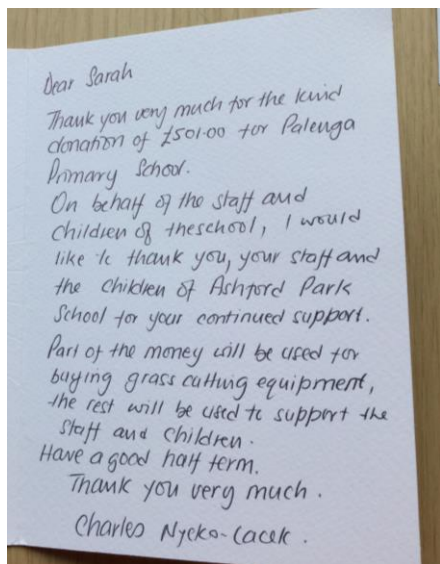 Dear Sarah
Thank you very much for the kind
donation of £501.00 for Palenga
Primary School.
On behalf of the staff and
children of theschool, I would
like to thank you, your staff and
the children of Ashford Park
School for your continued support.
Part of the money will be used for
buying grass cutting equipment,
the rest will be used to support the
staff and children.
Have a good half term.
Thank you very much.
Charles Nyeko-Lacek.